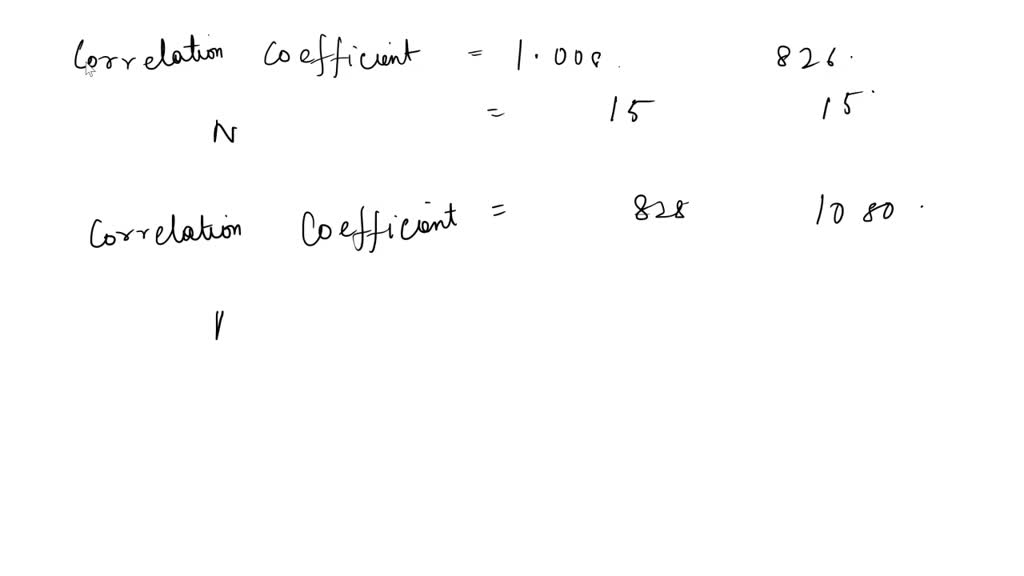 Correlation Coefficient = 1.000 826.
N = 15 15
Correlation Coefficient = 828 1080.